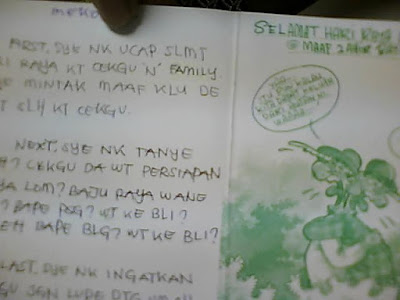 FIRST, SYE NK UCAP SLMT
RI RAYA KT CEKGU 'N' FAMILY.
YE MINTAK MAAF KLU DE
T SLH KT CEKGU.
NEXT, SYE NK TANYE
H? CEKGU DA WT PERSIAPAN
YA LOM? BAJU RAYA WANE
? BAPE PSG? WT KE BLI?
EH BAPE BLG? WT KE BLI?
LAST, SYE NK INGATKAN
GU JGN LUPE DTG
SELAMAT HARI RAYA
@ MAAF ZAHIR